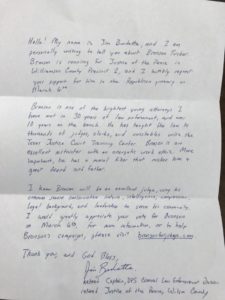 Hello! My name is Jim Burchette, and I am
personally writing to tell you about Branson Tucker.
Branson is running for Justice of the Peace in
Williamson County Precinct 2, and I humbly request
your support for him in the Republican primary on
March 6th.
Branson is one of the brightest young attorneys I
have met in 30 years of law enforcement, and
10 years on the bench. He has taught the law to
thousands of judges, clerks, and constables with the
Texas Justice Court Training Center. Branson is an
excellent instructor with an energetic work ethic. More
important, he has a moral fiber that makes him a
great and
I know Branson will be an excellent judge, using his
common sense conservative values, intelligence, experience,
legal background, and dedication to serve his community.
I would greatly appreciate your vote for Branson
on March 6th. For more information, or to help
Branson's campaign, please visit
Thank you, and God Bless,
Jim Burchette
retired Captain, DPS Criminal Law Enforcement Division
retired Justice of the Peace, Wilson County